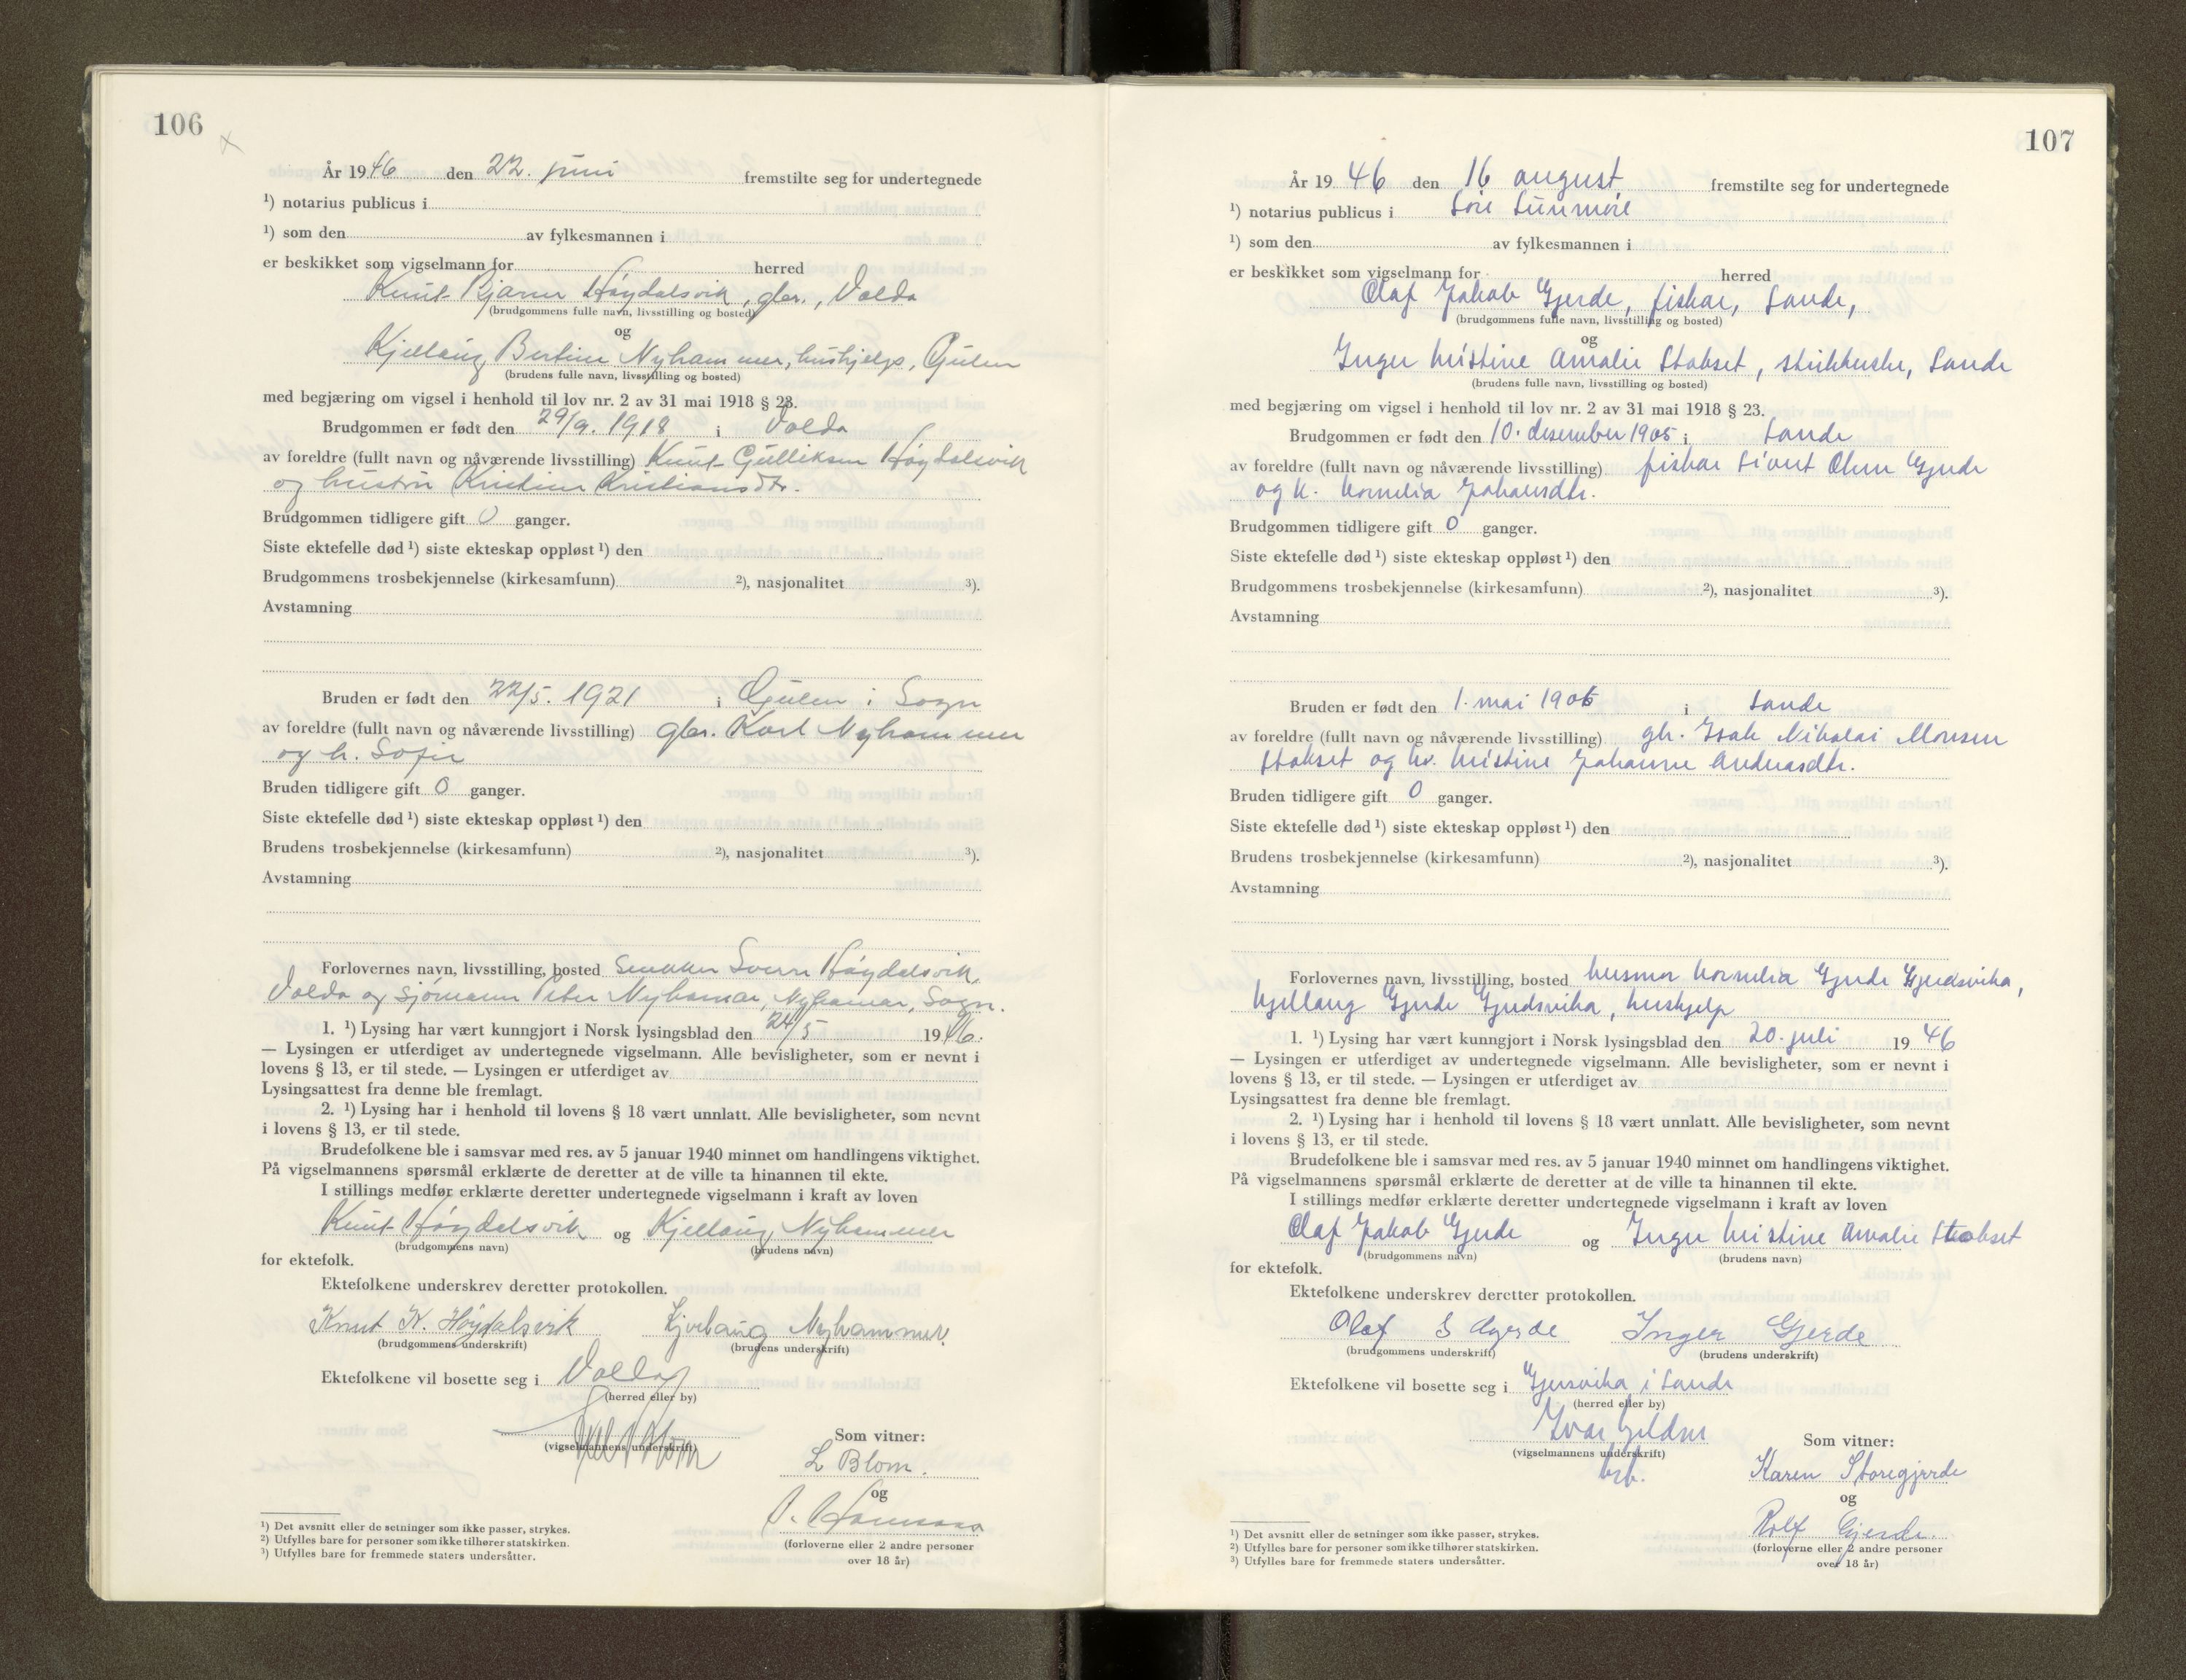 106
År 1946 den 22. juni fremstilte seg for undertegnede
¹) notarius publicus i
¹) som den av fylkesmannen i
er beskikket som vigselmann for herred
Knut Bjarne Høydalsvik, gbr., Volda
(brudgommens fulle navn, livsstilling og bosted)
og
Kjellaug Bertine Nyhammer, hushjelp, Gulen
(brudens fulle navn, livsstilling og bosted)
med begjæring om vigsel i henhold til lov nr. 2 av 31 mai 1918 § 23.
Brudgommen er født den 29/9. 1918 i Volda
av foreldre (fullt navn og nåværende livsstilling) Knut Gulliksen Høydalsvik
og hustru Kristine Kristiansdtr.
Brudgommen tidligere gift 0 ganger.
Siste ektefelle død ¹) siste ekteskap oppløst ¹) den
Brudgommens trosbekjennelse (kirkesamfunn) ²), nasjonalitet ³).
Avstamning
Bruden er født den 22/5. 1921 i Gulen i Sogn
av foreldre (fullt navn og nåværende livsstilling) gbr. Karl Nyhammer
og h. Sofie
Bruden tidligere gift 0 ganger.
Siste ektefelle død ¹) siste ekteskap oppløst ¹) den
Brudens trosbekjennelse (kirkesamfunn) ²), nasjonalitet ³).
Avstamning
Forlovernes navn, livsstilling, bosted snekker Sverre Høydalsvik,
Volda og sjømann Peter Nyhamar, Nyhamar, Sogn.
1. ¹) Lysing har vært kunngjort i Norsk lysingsblad den 24/5 1946.
— Lysingen er utferdiget av undertegnede vigselmann. Alle bevisligheter, som er nevnt i
lovens § 13, er til stede. — Lysingen er utferdiget av
Lysingsattest fra denne ble fremlagt.
2. ¹) Lysing har i henhold til lovens § 18 vært unnlatt. Alle bevisligheter, som nevnt
i lovens § 13, er til stede.
Brudefolkene ble i samsvar med res. av 5 januar 1940 minnet om handlingens viktighet.
På vigselmannens spørsmål erklærte de deretter at de ville ta hinannen til ekte.
I stillings medfør erklærte deretter undertegnede vigselmann i kraft av loven
Knut Høydalsvik og Kjellaug Nyhammer
(brudgommens navn) (brudens navn)
for ektefolk.
Ektefolkene underskrev deretter protokollen.
Knut K. Høydalsvik Kjellaug Nyhammer
(brudgommens underskrift) (brudens underskrift)
Ektefolkene vil bosette seg i Volda
(herred eller by)
(vigselmannens underskrift)
Som vitner:
L Blom.
og
(forloverne eller 2 andre personer
over 18 år)
¹) Det avsnitt eller de setninger som ikke passer, strykes.
²) Utfylles bare for personer som ikke tilhører statskirken.
³) Utfylles bare for fremmede staters undersåtter.
107
År 1946 den 16 august fremstilte seg for undertegnede
¹) notarius publicus i Søre Sunnmøre
¹) som den av fylkesmannen i
er beskikket som vigselmann for herred
Olaf Jakob Gjerde, fiskar, Sande,
(brudgommens fulle navn, livsstilling og bosted)
og
Inger Kristine Amalie Stokset, strikkerske, Sande
(brudens fulle navn, livsstilling og bosted)
med begjæring om vigsel i henhold til lov nr. 2 av 31 mai 1918 § 23.
Brudgommen er født den 10. desember 1905 i Sande
av foreldre (fullt navn og nåværende livsstilling) fiskar Sivert Olsen Gjerde
og k. Kornelia Johansdtr.
Brudgommen tidligere gift 0 ganger.
Siste ektefelle død ¹) siste ekteskap oppløst ¹) den
Brudgommens trosbekjennelse (kirkesamfunn) ²), nasjonalitet ³).
Avstamning
Bruden er født den 1. mai 1906 i Sande
av foreldre (fullt navn og nåværende livsstilling) gbr. Isak Nikolai Monsen
Stokset og kv. Kristine Johanne Andreasdtr.
Bruden tidligere gift 0 ganger.
Siste ektefelle død ¹) siste ekteskap oppløst ¹) den
Brudens trosbekjennelse (kirkesamfunn) ²), nasjonalitet ³).
Avstamning
Forlovernes navn, livsstilling, bosted husmor Kornelia Gjerde Gjerdsvika,
Kjellaug Gjerde Gjerdsvika, hushjelp
1. ¹) Lysing har vært kunngjort i Norsk lysingsblad den 20. juli 1946
— Lysingen er utferdiget av undertegnede vigselmann. Alle bevisligheter, som er nevnt i
lovens § 13, er til stede. — Lysingen er utferdiget av
Lysingsattest fra denne ble fremlagt.
2. ¹) Lysing har i henhold til lovens § 18 vært unnlatt. Alle bevisligheter, som nevnt
i lovens § 13, er til stede.
Brudefolkene ble i samsvar med res. av 5 januar 1940 minnet om handlingens viktighet.
På vigselmannens spørsmål erklærte de deretter at de ville ta hinannen til ekte.
I stillings medfør erklærte deretter undertegnede vigselmann i kraft av loven
Olaf Jakob Gjerde og Inger Kristine Amalie Stokset
(brudgommens navn) (brudens navn)
for ektefolk.
Ektefolkene underskrev deretter protokollen.
Olaf S Gjerde Inger Gjerde
(brudgommens underskrift) (brudens underskrift)
Ektefolkene vil bosette seg i Gjersvika i Sande
(herred eller by)
Ivar
(vigselmannens underskrift)
Som vitner:
Karen Storegjerde
og
Rolf Gjerde.
(forloverne eller 2 andre personer
over 18 år)
¹) Det avsnitt eller de setninger som ikke passer, strykes.
²) Utfylles bare for personer som ikke tilhører statskirken.
³) Utfylles bare for fremmede staters undersåtter.